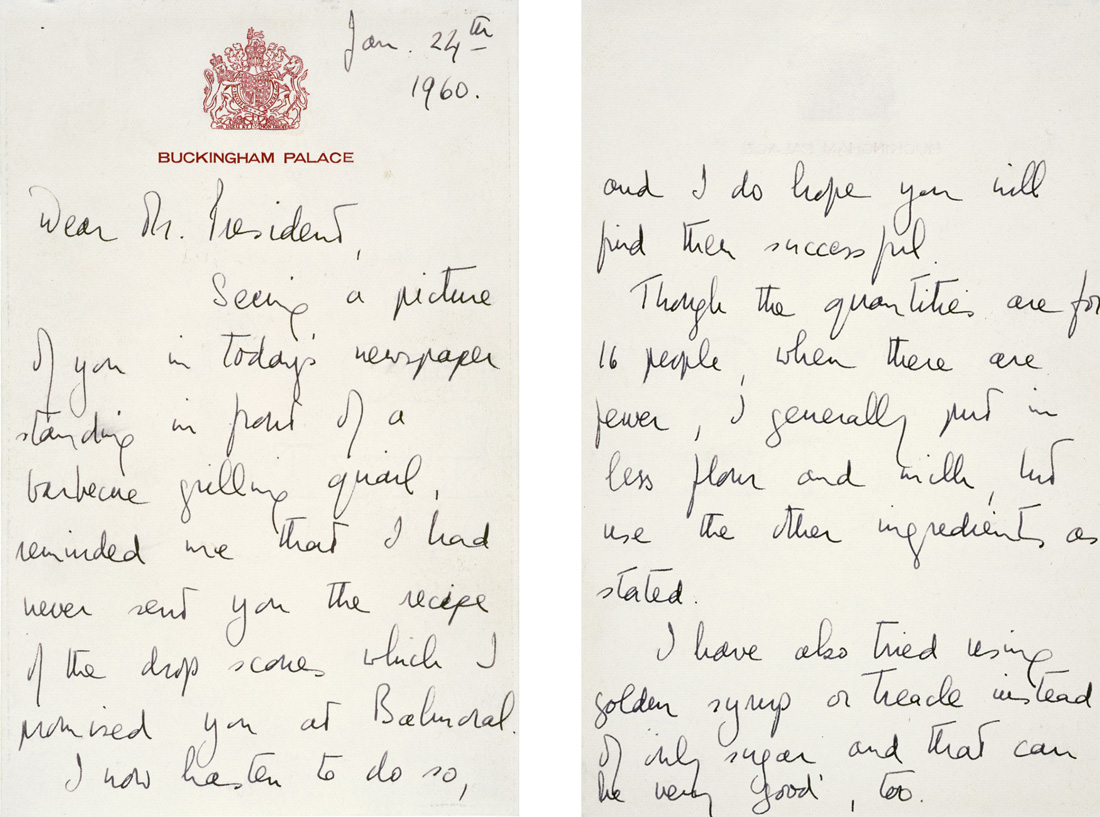 Jan. 24th
1960.
BUCKINGHAM PALACE
Dear Mr. President,
Seeing a picture
of you in today's newspaper
standing in front of a
barbecue grilling quail,
reminded me that I had
never sent you the recipe
of the drop scones which I
promised you at Balmoral.
I now hasten to do so,
and I do hope you will
find them successful.
Though the quantities are for
16 people, when there are
fewer, I generally put in
less flour and milk, but
use the other ingredients as
stated.
I have also tried using
golden syrup or treacle instead
of only sugar and that can
be very good, too.